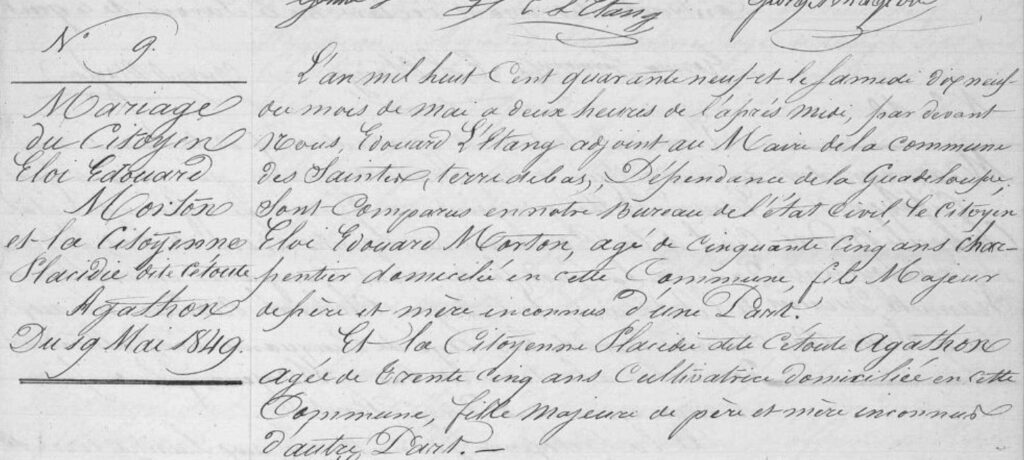 E. L'Etang
N° 9.
Mariage
du Citoyen
Eloi Edouard
Morton
et la Citoyenne
Placidie dite Cétoute
Agathon
Du 19 Mai 1849.
L'an mil huit Cent quarante neuf et le Samedi dix neuf
du mois de mai a deux heures de l'après midi, par devant
Nous, Edouard L'Etang adjoint au Maire de la commune
des Saintes, terre de bas, Dépendance de la Guadeloupe,
Sont Comparus en notre Bureau de l'état Civil le Citoyen
Eloi Edouard Morton, agé de Cinquante Cinq ans char-
pentier domicilié en cette Commune, fils Majeur
de père et mère inconnus d'une Part.
Et la Citoyenne Placidie dite Cétoute Agathon
agée de Trente Cinq ans Cultivatrice domiciliée en cette
Commune, fille majeure de père et mère inconnus
d'autre Part. —